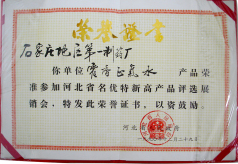 荣誉证书
石家庄地区第一制药厂
你单位 霍香正气水 产品荣
准参加河北省名优特新高产品评选展
销会,特发此荣誉证书,以资鼓励。
河北省
月二十九日